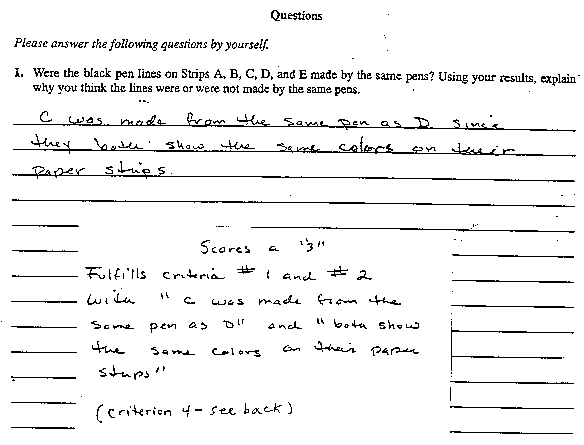 Questions
Please answer the following questions by yourself.
1. Were the black pen lines on Strips A, B, C, D, and E made by the same pens? Using your results, explain
why you think the lines were or were not made by the same pens.
C was made from the same pen as D since
they both show the same colors on their
paper strips.
Scores a "3"
Fulfills criteria # 1 and # 2
with " C was made from the
same pen as D" and "both show
the same colors on their paper
strips"
(criterion 4 - see back)